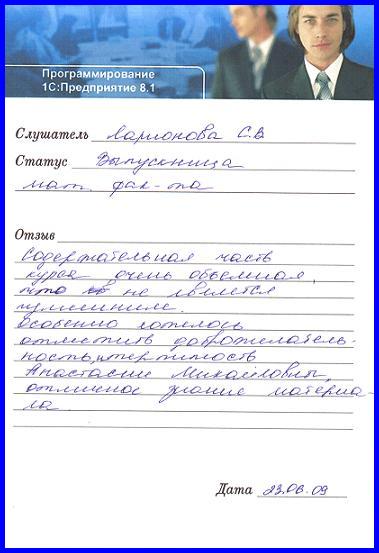 Программирование
1С:Предприятие 8.1
Слушатель Ларионова С.В
Статус Выпускница
мат. фак-та
Отзыв
Содержательная часть
курса очень объемная,
что не является
минусом.
Особенно хотелось
отметить доброжелатель-
ность, терпимость
Анастасии Михайловны,
отличное знание материа-
ла.
Дата 23.06.09